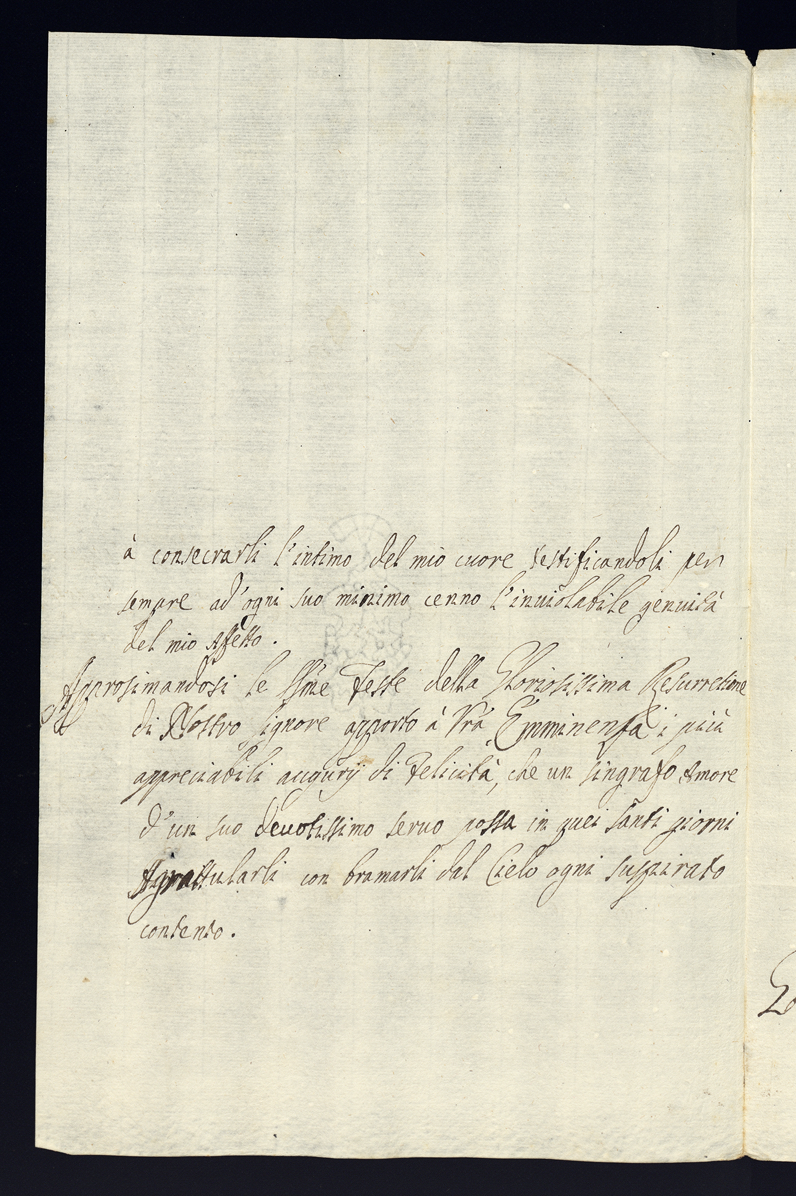 à consecrarli l'intimo del mio cuore testificandoli per
sempre ad'ogni suo minimo cenno l'inuiolabile genuità
del mio Affetto.
Approsimandosi le SSme Feste della Gloriosissima Resurretione
di Nostro signore apporto à Vrã Emminenza i più
appreciabili augurij di Felicità, che un singrafo Amore
d'un suo deuotissimo seruo possa in quei santi giorni
Agrattularli con bramarli dal Cielo ogni suspirato
contento.